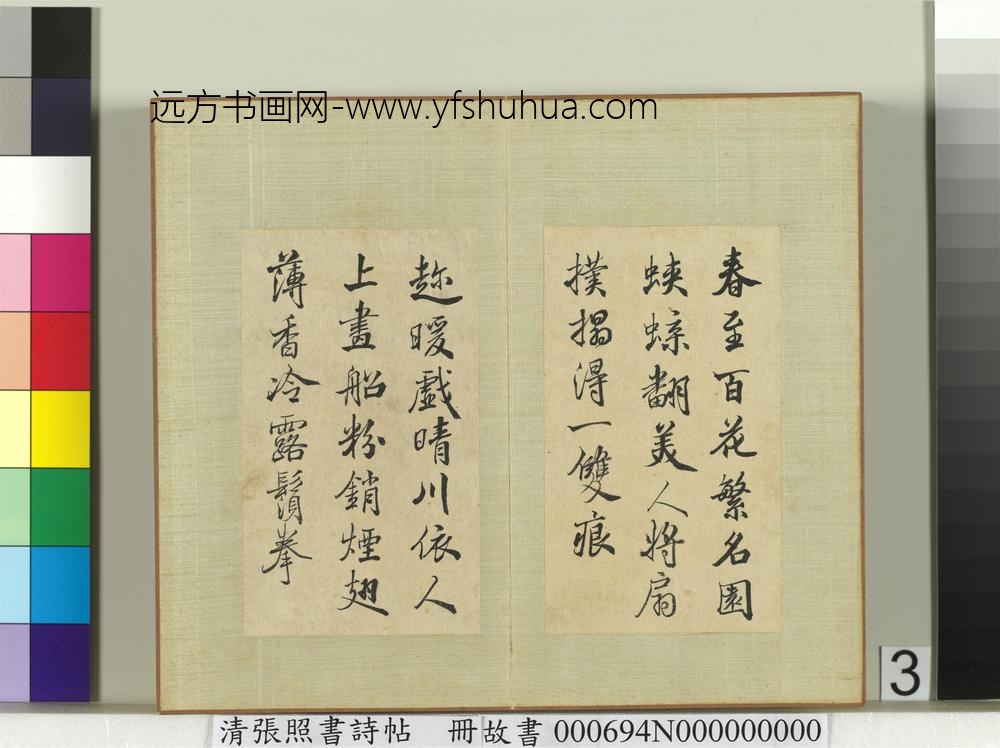 远方书画网-www.yfshuhua.com
春至百花繁名園
蛺蝶翻美人將扇
撲搨得一雙痕
趂暖戲晴川依人
上畫船粉銷煙翅
薄香冷露鬚拳
3
清張照書詩帖 冊故書 000694N000000000